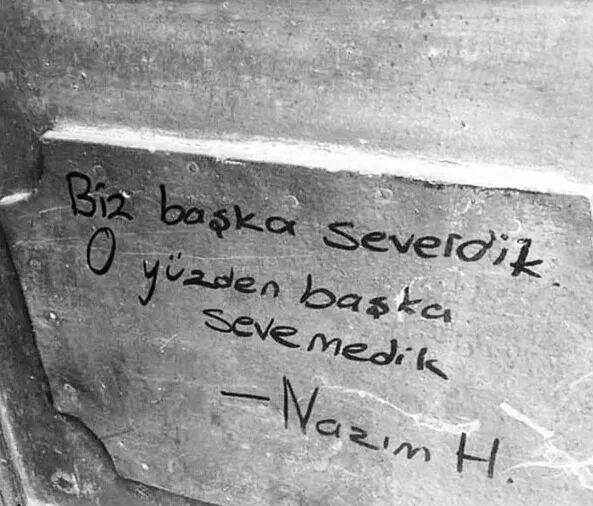 Biz başka severdik.
O yüzden başka
sevemedik
— Nazım H.